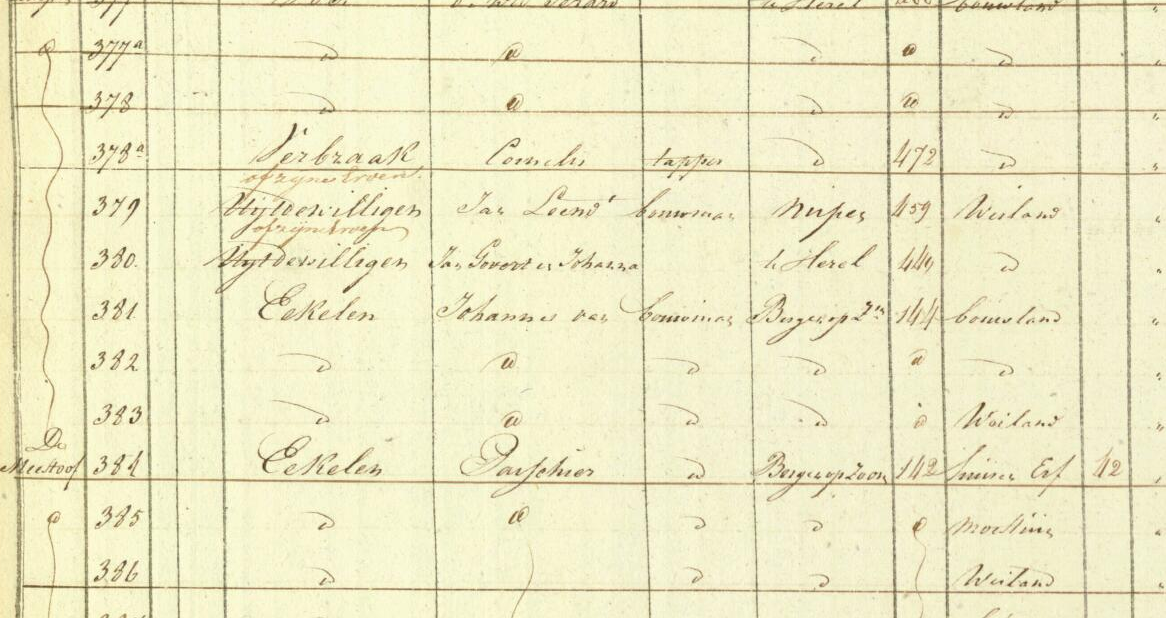 377
377a d d d d d
378 d d d d d
378a Verbraak Cornelis tapper d 472 d
of zyne Erven
379 Uytdewilligen Jan Leend.t bouwman Nupen 459 Weiland
of zyne Erven
380. Uytdewilligen Jan Govert en Johanna te Herel 449 d
381 Eekelen Johannes van bouwman Bergen op Zm 144 bouwland
382 d d d d d d
383 d d d d d Weiland
De
Meestoof 384 Eekelen Paschier d Bergen op Zoom 142 huis en Erf 42
d 385 d d d d d moestuin
386 d d d Weiland